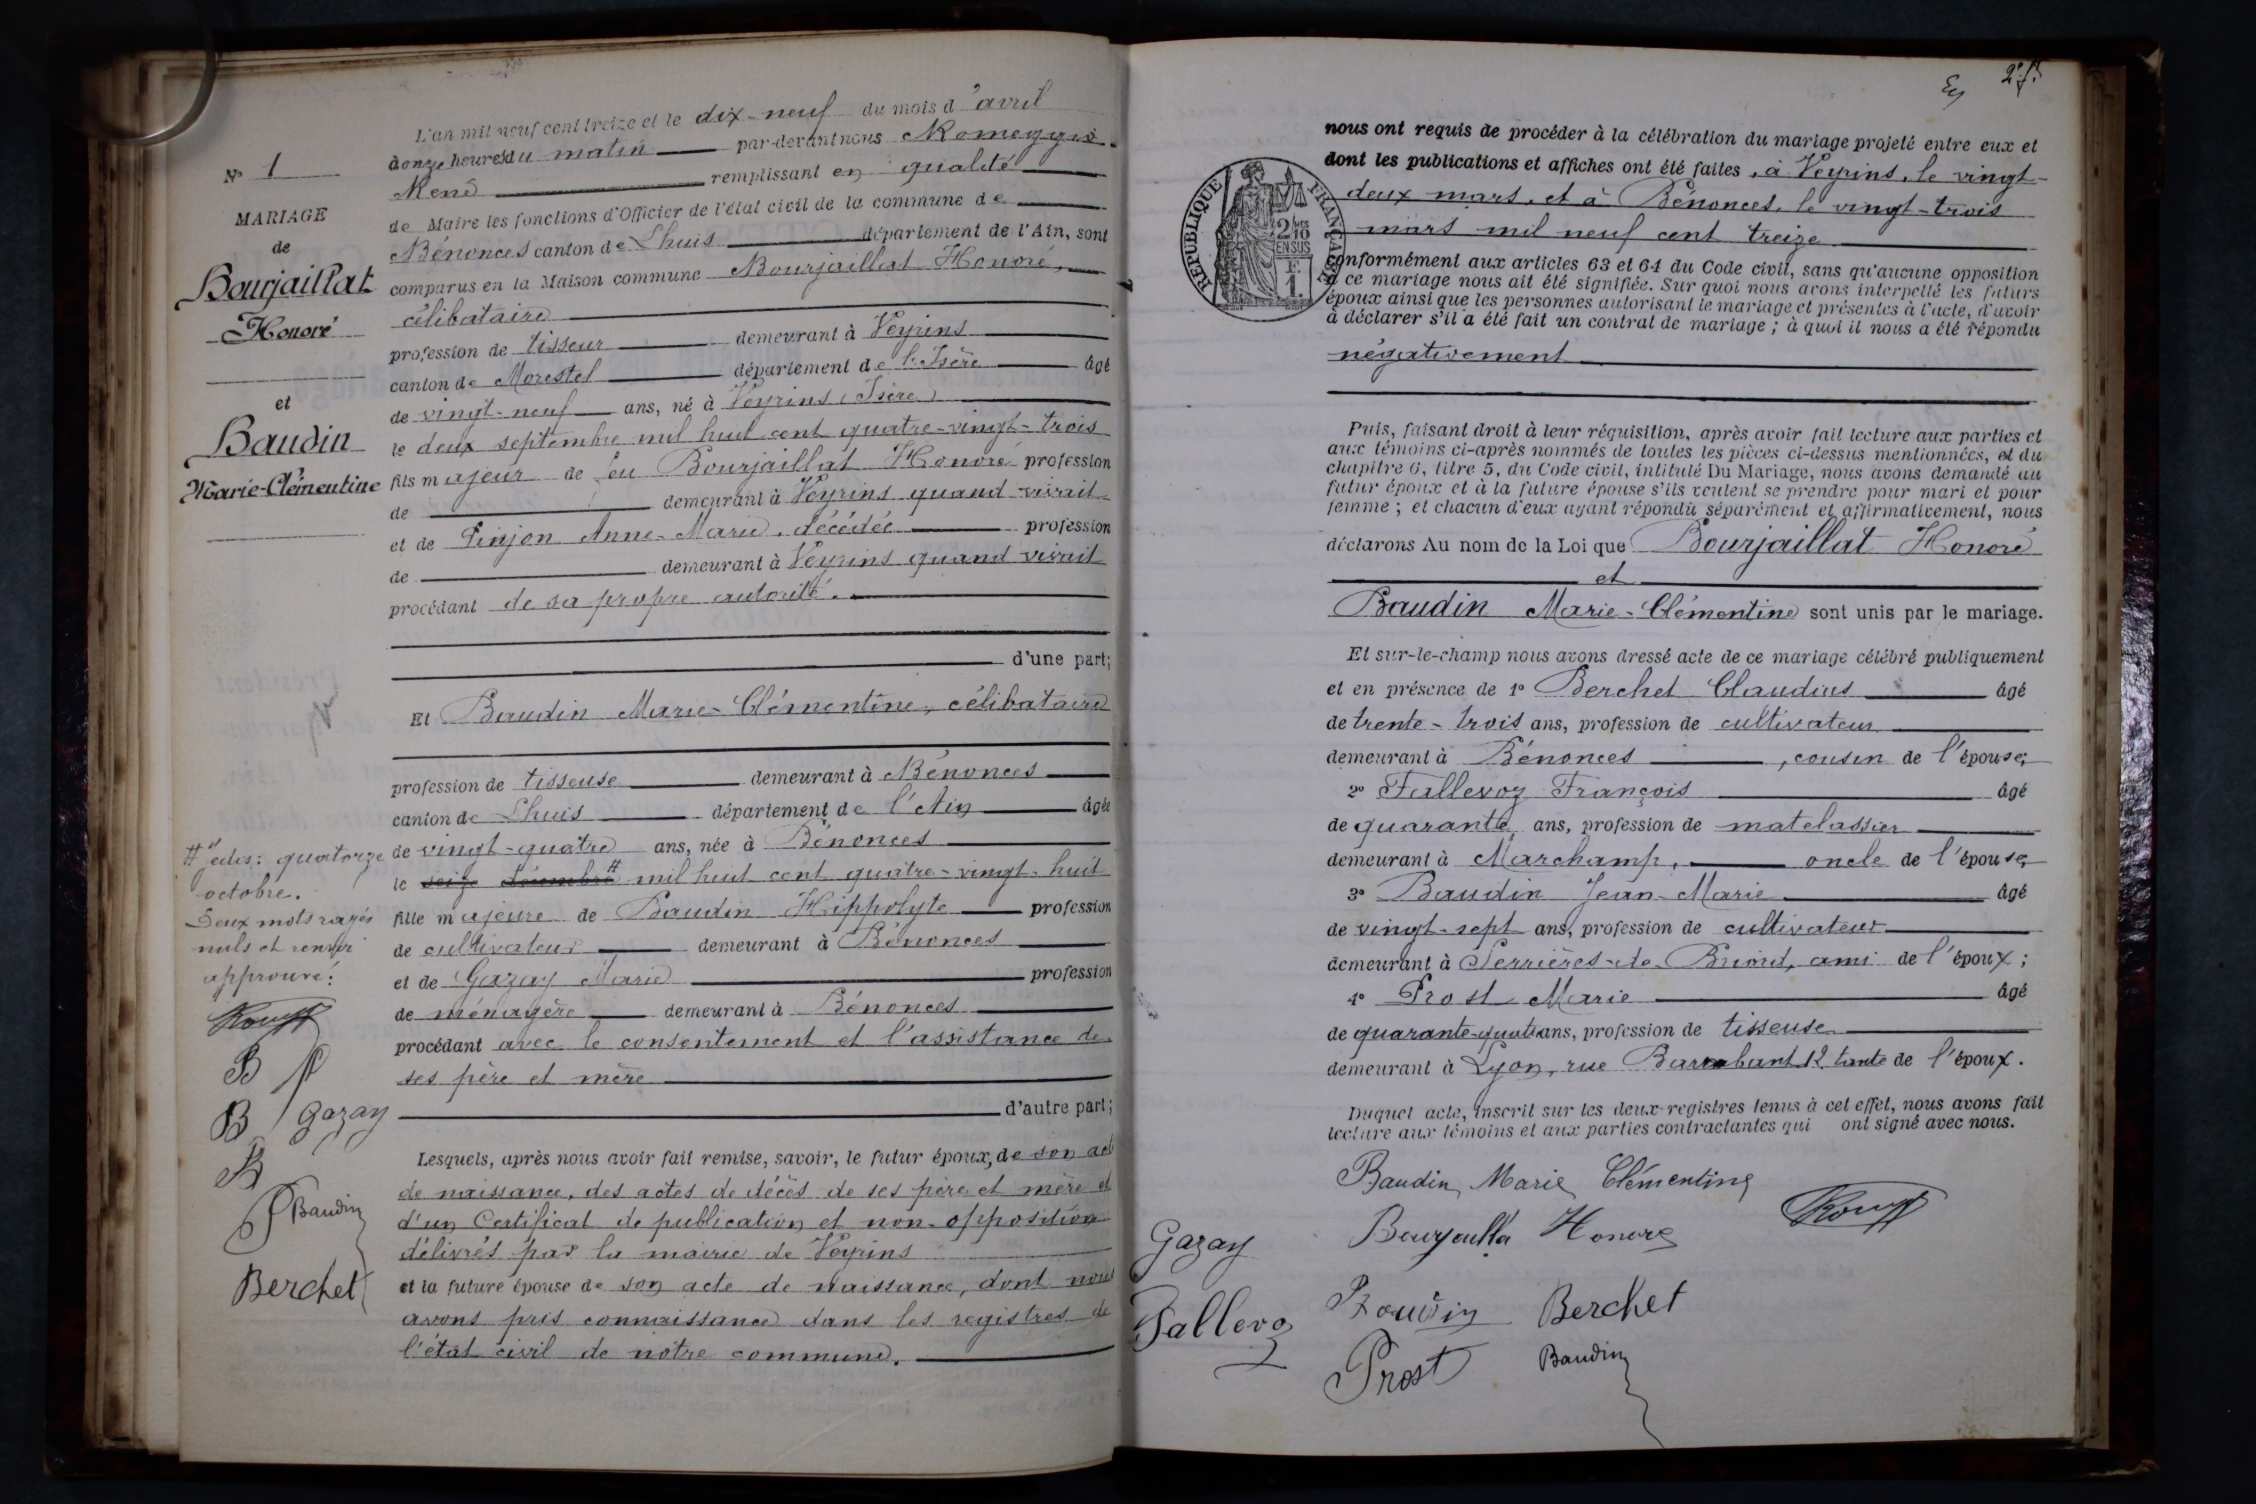 L'an mil neuf cent treize et le dix-neuf du mois d'avril
à onze heures du matin par-devant nous
René remplissant en qualité
de Maire les fonctions d'Officier de l'état civil de la commune de
Bénonces canton de Lhuis département de l'Ain, sont
comparus en la Maison commune Bourjaillat Honoré,
célibataire
profession de tisseur demeurant à Veyrins
canton de Morestel département de l'Isère âgé
de vingt-neuf ans, né à Veyrins (Isère)
le deux septembre mil huit cent quatre-vingt-trois
fils majeur de feu Bourjaillat Honoré profession
de demeurant à Veyrins quand vivait
et de Pinjon Anne-Marie, décédée profession
de demeurant à Veyrins quand vivait
procédant de sa propre autorité.
d'une part;
Et Baudin Marie-Clémentine, célibataire
profession de tisseuse demeurant à Bénonces
canton de Lhuis département de l'Ain âgée
de vingt-quatre ans, née à Bénonces
le seize décembre # mil huit cent quatre-vingt-huit
fille majeure de Baudin Hippolyte profession
de cultivateur demeurant à Bénonces
et de Gazay Marie profession
de ménagère demeurant à Bénonces
procédant avec le consentement et l'assistance de
ses père et mère
d'autre part;
Lesquels, après nous avoir fait remise, savoir, le futur époux, de son acte
de naissance, des actes de décès de ses père et mère et
d'un Certificat de publication et non-opposition
délivrés par la mairie de Veyrins
et la future épouse de son acte de naissance, dont nous
avons pris connaissance dans les registres de
l'état civil de notre commune.
N° 1
MARIAGE
de
Bourjaillat
Honoré
et
Baudin
Marie-Clémentine
# quatorze
octobre.
Deux mots rayés
nuls et renvoi
approuvé:
B P
B Gazay
B
P Baudin
Berchet
2 f.
nous ont requis de procéder à la célébration du mariage projeté entre eux et
dont les publications et affiches ont été faites, à Veyrins, le vingt-
deux mars, et à Bénonces, le vingt-trois
mars mil neuf cent treize
conformément aux articles 63 et 64 du Code civil, sans qu'aucune opposition
à ce mariage nous ait été signifiée. Sur quoi nous avons interpellé les futurs
époux ainsi que les personnes autorisant le mariage et présentes à l'acte, d'avoir
à déclarer s'il a été fait un contrat de mariage; à quoi il nous a été répondu
négativement
RÉPUBLIQUE FRANÇAISE
2/10
EN SUS
F.
1.
Puis, faisant droit à leur réquisition, après avoir fait lecture aux parties et
aux témoins ci-après nommés de toutes les pièces ci-dessus mentionnées, et du
chapitre 6, titre 5, du Code civil, intitulé Du Mariage, nous avons demandé au
futur époux et à la future épouse s'ils veulent se prendre pour mari et pour
femme; et chacun d'eux ayant répondu séparément et affirmativement, nous
déclarons Au nom de la Loi que Bourjaillat Honoré
et
Baudin Marie-Clémentine sont unis par le mariage.
Et sur-le-champ nous avons dressé acte de ce mariage célébré publiquement
et en présence de 1° Berchet Claudius âgé
de trente-trois ans, profession de cultivateur
demeurant à Bénonces, cousin de l'épouse;
2° Fallevoz François âgé
de quarante ans, profession de matelassier
demeurant à Marchamp, oncle de l'épouse;
3° Baudin Jean-Marie âgé
de vingt-sept ans, profession de cultivateur
demeurant à Serrières-de-Briord, ami de l'époux;
4° Prost Marie âgé
de quarante-quatre ans, profession de tisseuse
demeurant à Lyon, rue Baraban 12 tante de l'époux.
Duquel acte, inscrit sur les deux registres tenus à cet effet, nous avons fait
lecture aux témoins et aux parties contractantes qui ont signé avec nous.
Baudin Marie Clémentine
Gazay Honoré
Fallevoz Baudin Berchet
Prost Baudin